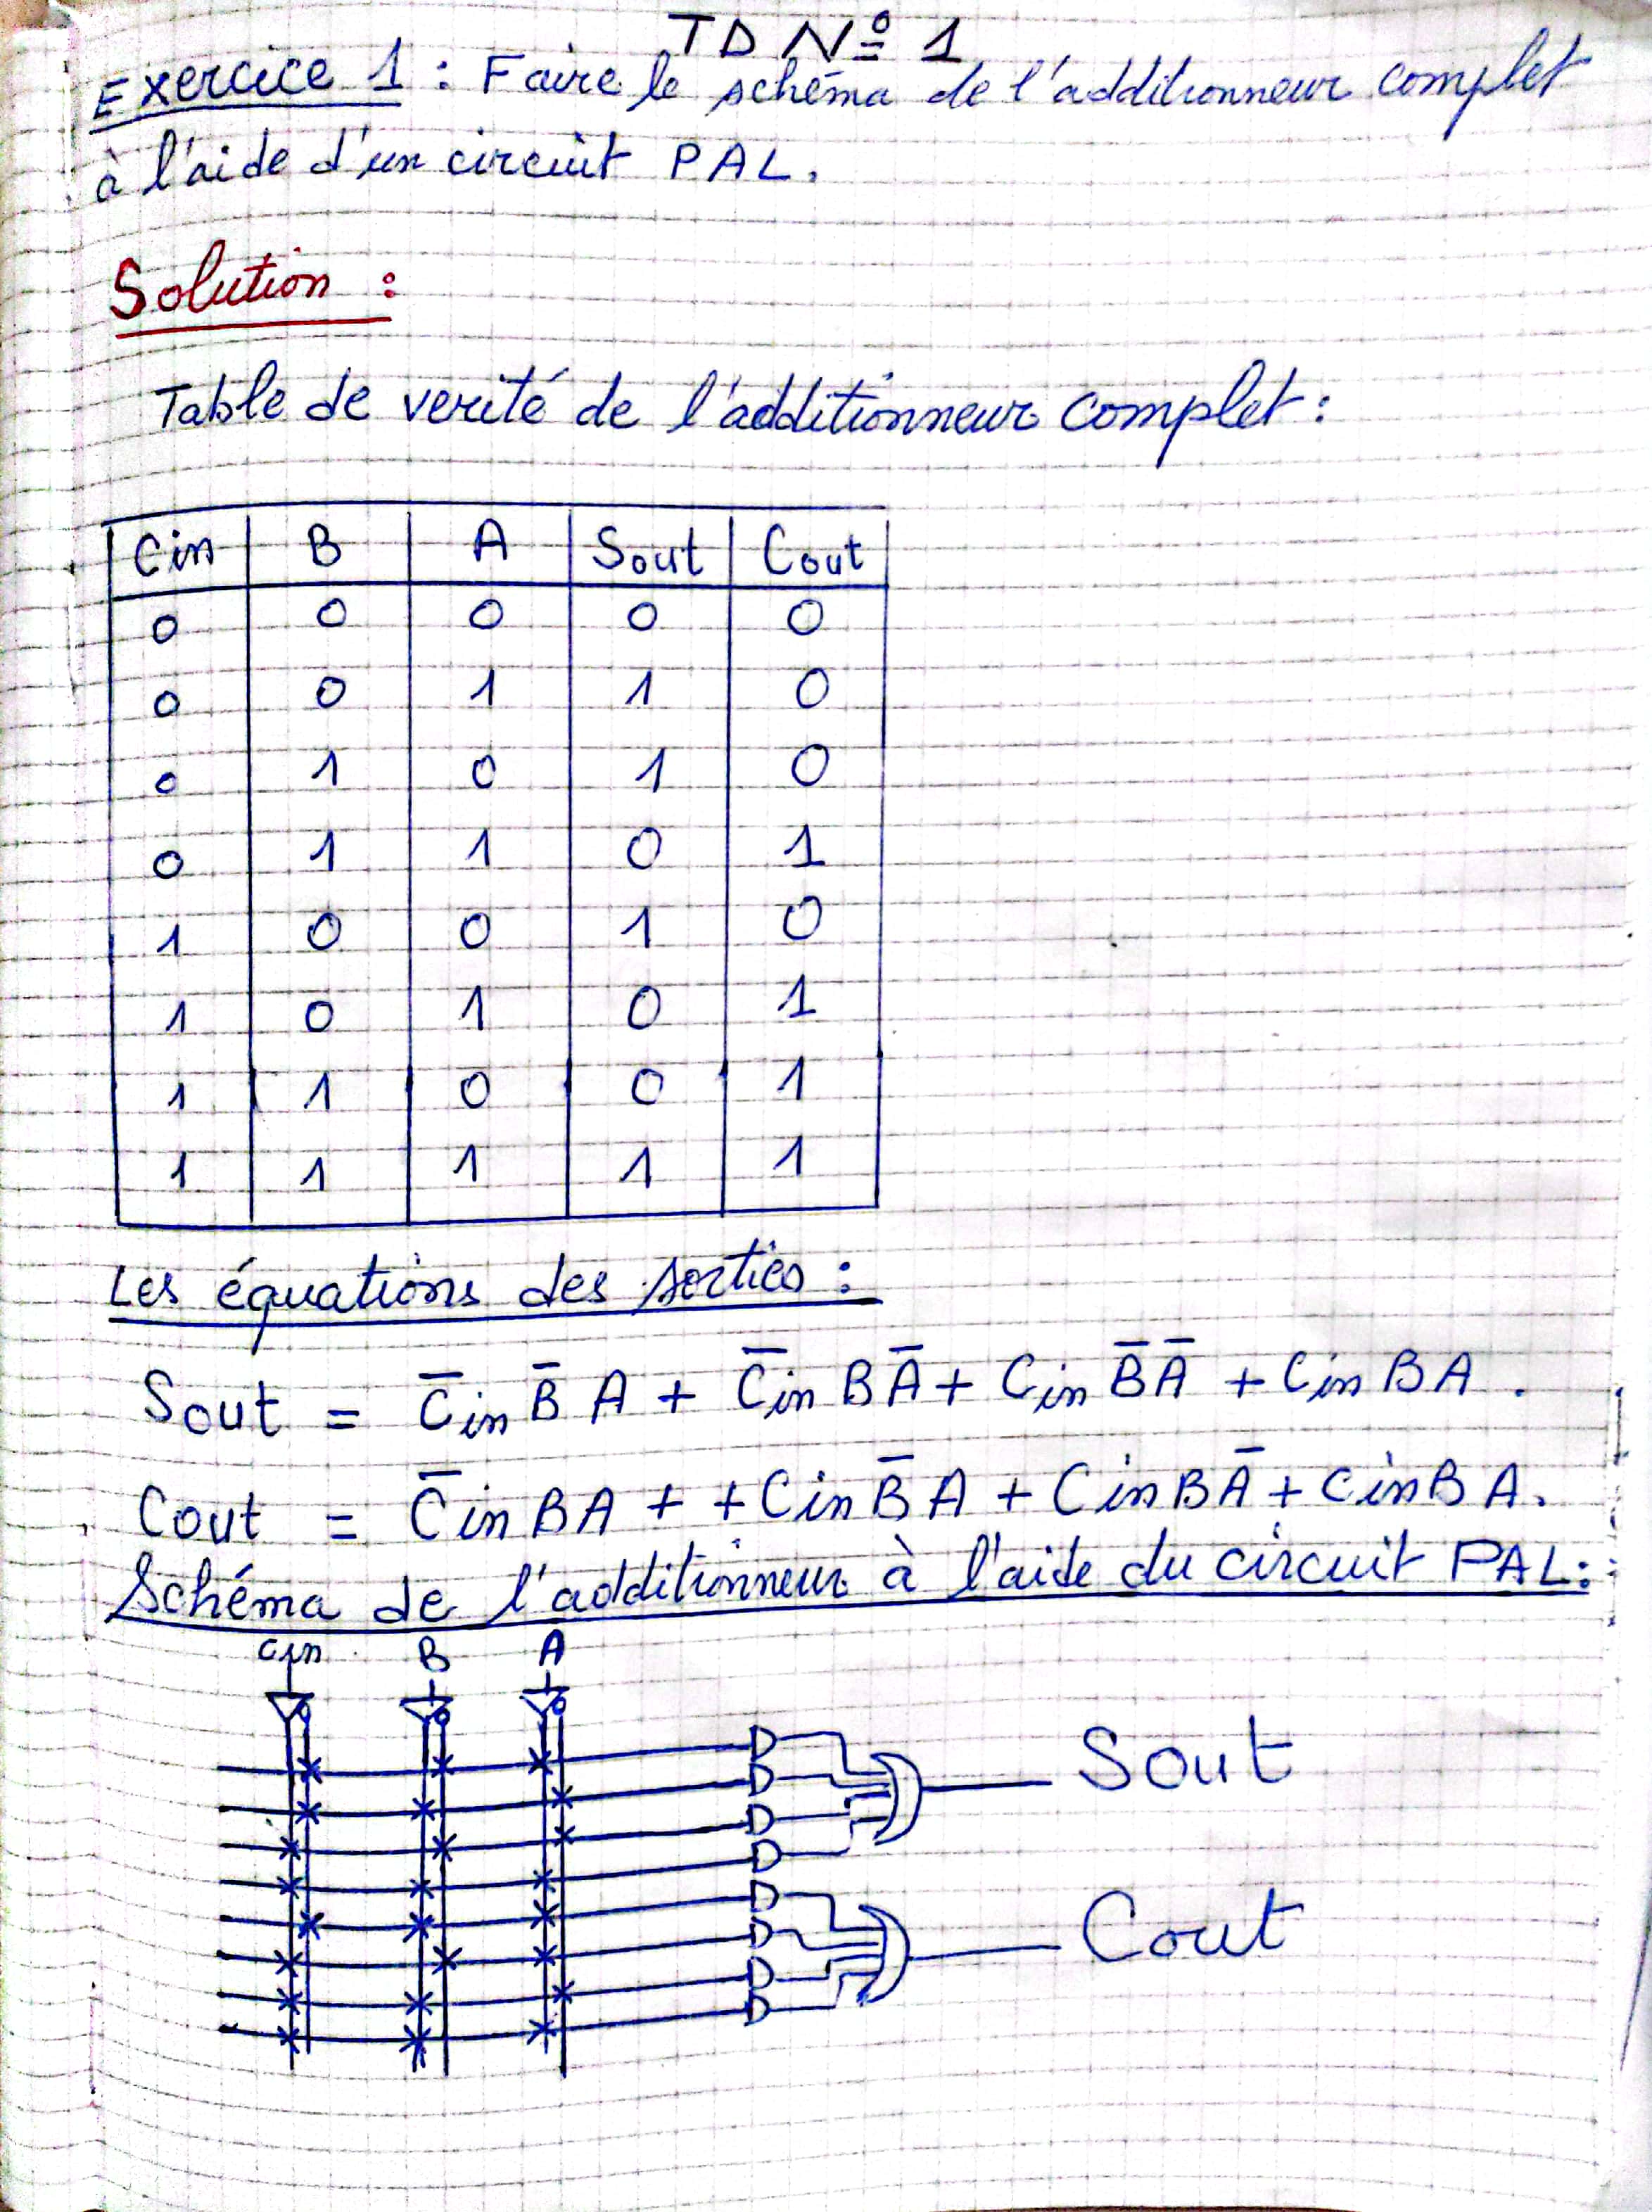 TD Nº 1
Exercice 1 : Faire le schéma de l'additionneur complet
à l'aide d'un circuit PAL.
Solution :
Table de verité de l'additionneur complet :
Cin B A Sout Cout
0 0 0 0 0
0 0 1 1 0
0 1 0 1 0
0 1 1 0 1
1 0 0 1 0
1 0 1 0 1
1 1 0 0 1
1 1 1 1 1
Les équations des sorties :
Sout = C̅in B̅ A + C̅in B A̅ + Cin B̅ A̅ + Cin B A .
Cout = C̅in B A + + Cin B̅ A + Cin B A̅ + Cin B A .
Schéma de l'additionneur à l'aide du circuit PAL :
Cin B A
Sout
Cout